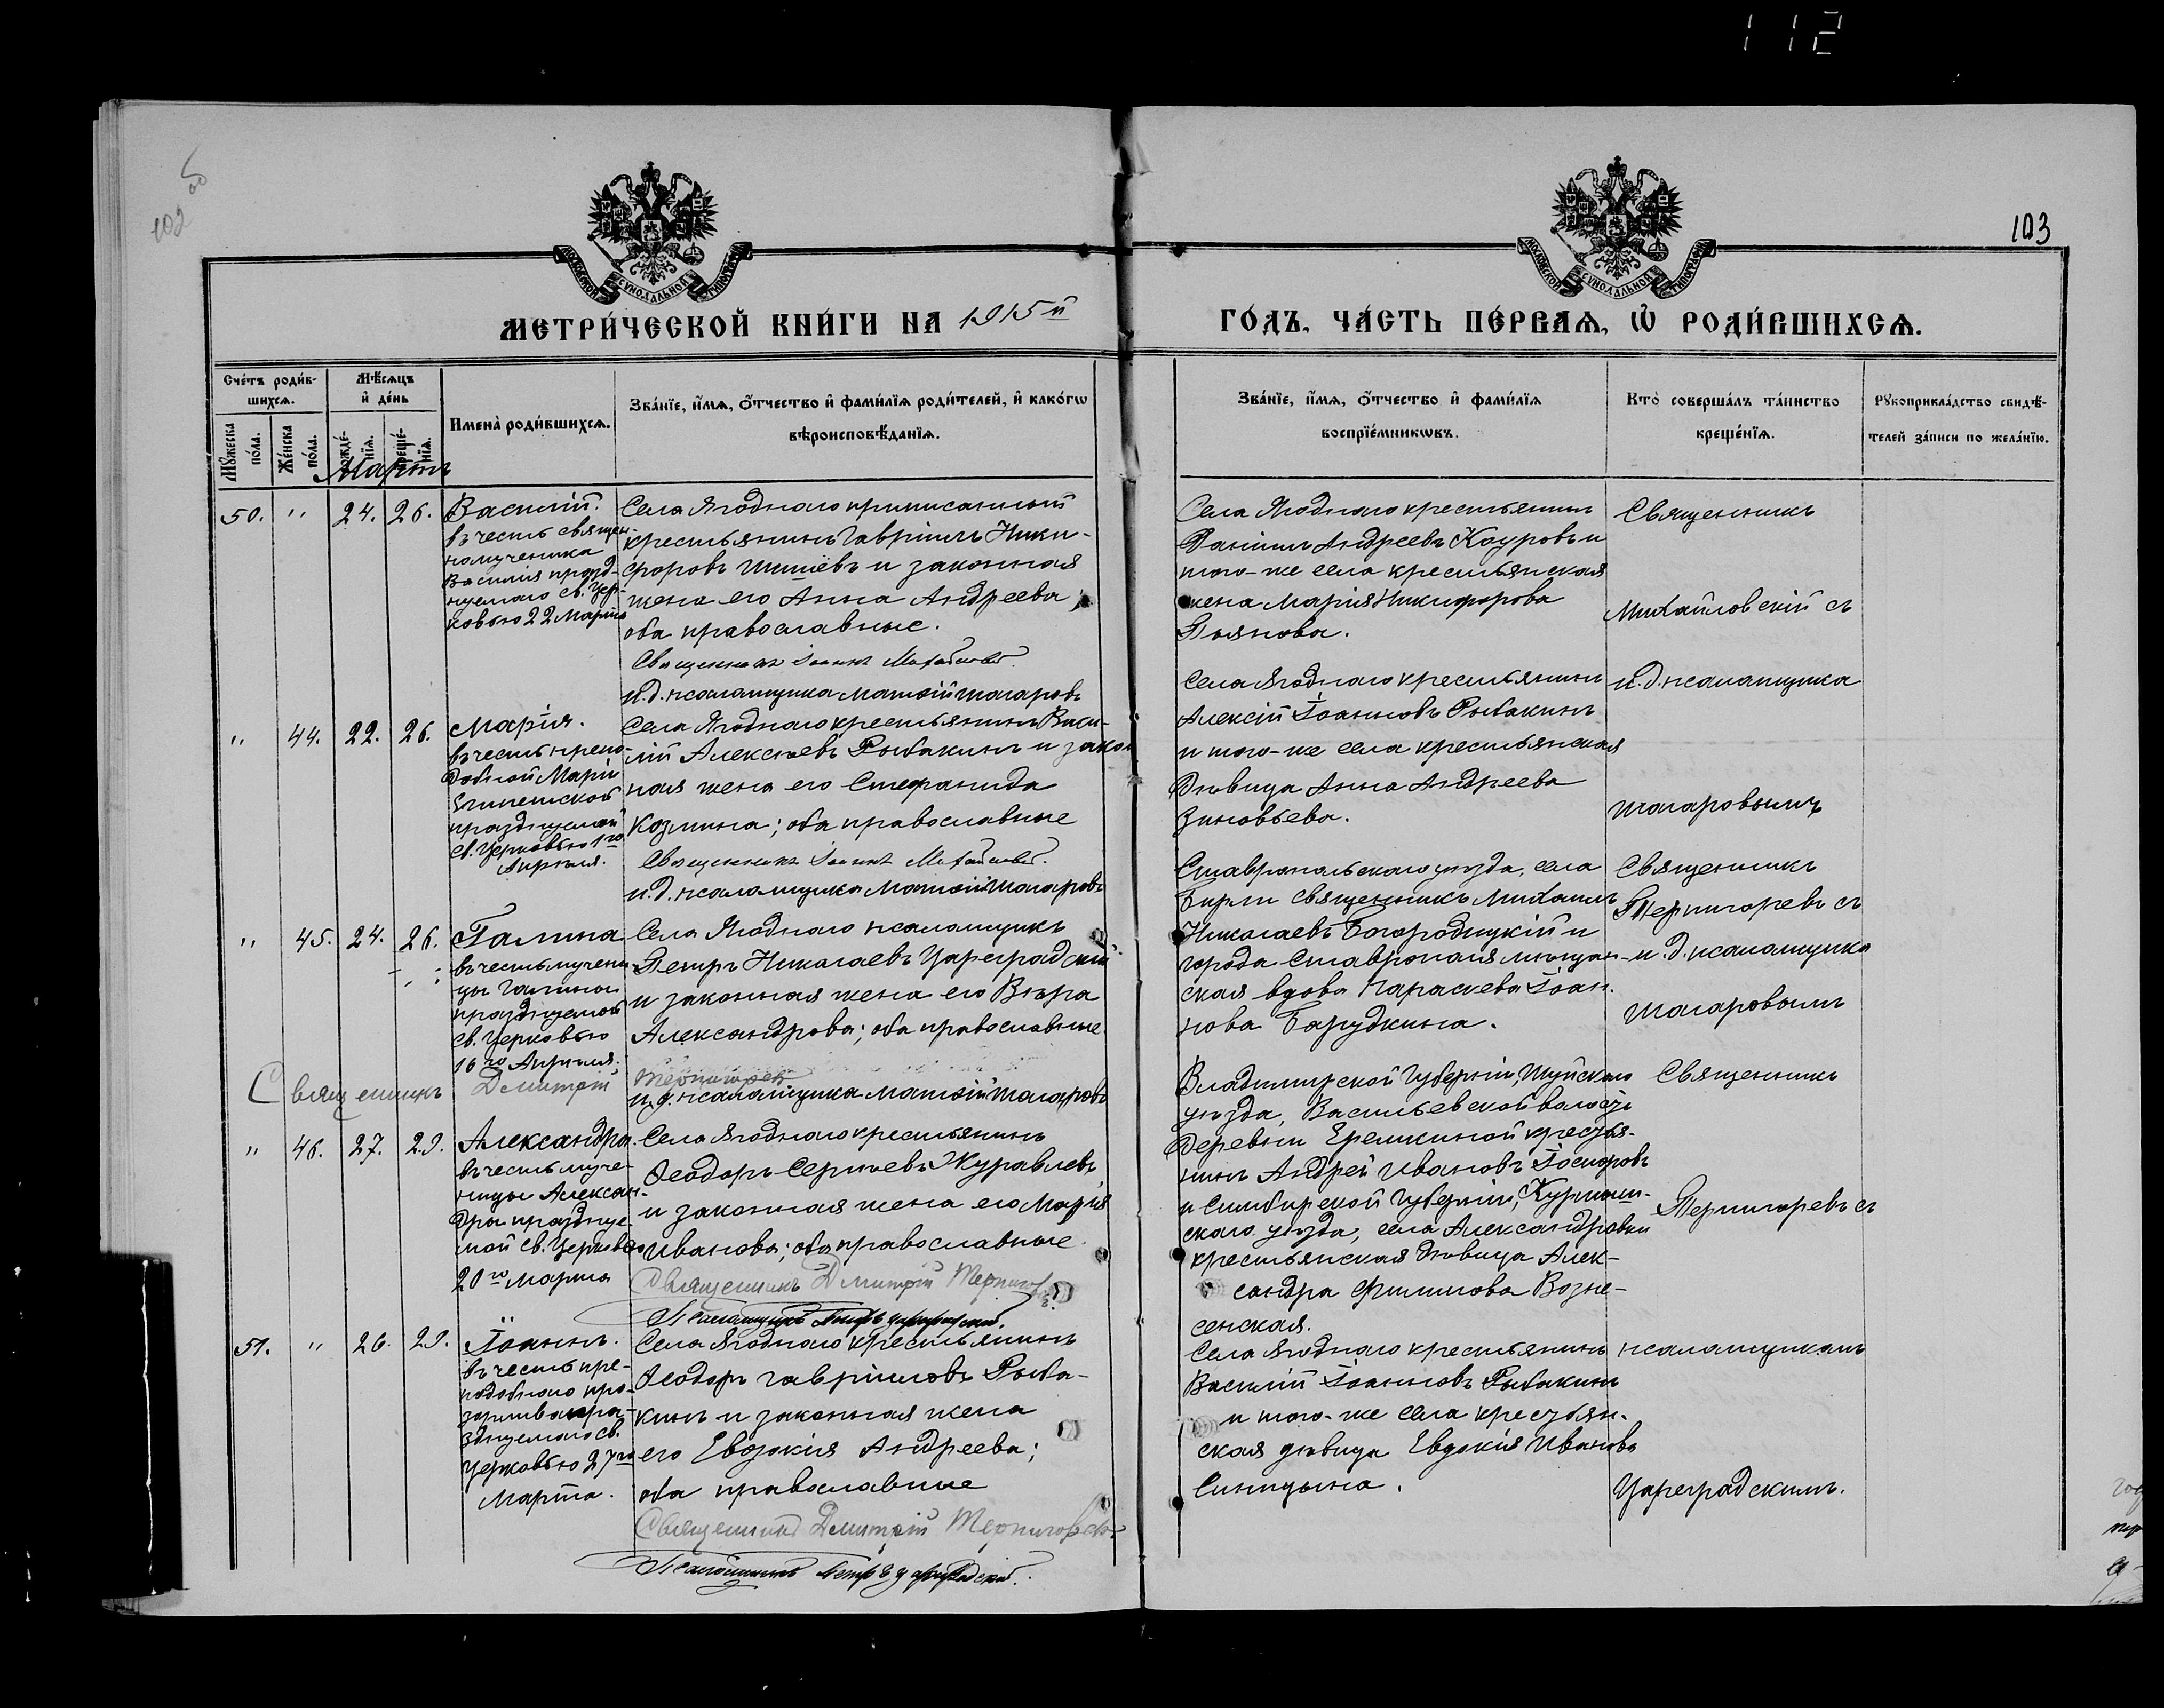 112
102 об
103
МОСКОВСКОЙ СѴНОДАЛЬНОЙ ТИПОГРАФІИ
МОСКОВСКОЙ СѴНОДАЛЬНОЙ ТИПОГРАФІИ
МЕТРИ́ЧЕСКОЙ КНИ́ГИ НА 1915й
ГО́ДЪ, ЧА́СТЬ ПЕ́РВАѦ, Ѡ҆ РОДИ́ВШИХСѦ.
Сче́тъ роди́в-
шихсѧ.
Мѣ́сѧцъ
и҆ де́нь
Мꙋ́жеска по́ла.
Же́нска по́ла.
рожде́-нїѧ.
креще́-нїѧ.
Имена̀ роди́вшихсѧ.
Зва́нїе, и҆́мѧ, ѻ҆́тчество и҆ фами́лїѧ роди́телей, и҆ како́гѡ
вѣроисповѣ́данїѧ.
Зва́нїе, и҆́мѧ, ѻ҆́тчество и҆ фами́лїѧ
воспрїе́мникѡвъ.
Кто̀ соверша́лъ та́инство
креще́нїѧ.
Рꙋкоприкла́дство свидѣ́-
телей за́писи по жела́нїю.
Мартъ
50. " 24. 26.
Василій.
въ честь священ-
номученика
Василія празд-
нуемаго св. Цер-
ковью 22 Марта
Села Ягоднаго приписанный
крестьянинъ Гавріилъ Ники-
форовъ и законная
жена его Анна Андреева;
оба православные.
Священникъ Іоаннъ Михайловскій.
и.д. псаломщика Матѳій Шагаровъ
Села Ягоднаго крестьянинъ
Даніилъ Андреевъ Кауровъ и
того-же села крестьянская
жена Марія Никифорова
Священникъ
Михайловскій съ
и.д. псаломщика
Шагаровымъ
" 44. 22. 26.
Марія.
въ честь препо-
добной Маріи
Египетской
празднуемой
св. Церковью 1го
Апрѣля.
Села Ягоднаго крестьянинъ Васи-
лій Алексѣевъ Рыбакинъ и закон
ная жена его Стефанида
Козмина; оба православные
Священникъ Іоаннъ Михайловскій.
и.д. псаломщика Матѳій Шагаровъ
Села Ягоднаго крестьянинъ
Алексій Іоанновъ Рыбакинъ
и того-же села крестьянская
дѣвица Анна Андреева
Зиновьева.
" 45. 24. 26.
Галина
въ честь мучени-
цы Галины
празднуемой
св. Церковью
16го Апрѣля.
Села Ягоднаго псаломщикъ
Петръ Николаевъ Цареградскій
и законная жена его Вѣра
Александрова; оба православные
Священникъ Дмитрій Терпигорев
и.д. псаломщика Матѳій Шагаровъ
Ставропольскаго уѣзда, села
Бирли священникъ Михаилъ
Николаевъ Богородицкій и
города Ставрополя мѣщан-
ская вдова Параскева Іоан-
нова Барудкина.
Священникъ
Терпигоревъ съ
и.д. псаломщика
Шагаровымъ
" 46. 27. 29.
Александра.
въ честь муче-
ницы Алексан-
дры праздну-
мой св. Церковью
20го Марта
Села Ягоднаго крестьянинъ
Ѳеодоръ Сергѣевъ Журавлевъ
и законная жена его Марія
Иванова; оба православные.
Священникъ Дмитрій Терпигорев
Псаломщикъ Петръ Цареградскій.
Владимирской Губерніи, Шуйскаго
уѣзда, Васильевской волости
деревни Еремкиной крестья-
нинъ Андрей Ивановъ
и Симбирской Губерніи, Курмыш-
скаго уѣзда, села Александровки
крестьянская дѣвица Алек-
сандра Филипова Возне-
сенская.
Священникъ
Терпигоревъ съ
псаломщикомъ
Цареградскимъ.
51. " 26. 29.
Іоаннъ.
въ честь пре-
подобнаго про-
зорливца пра-
зднуемаго св.
Церковью 27го
Марта.
Села Ягоднаго крестьянинъ
Ѳеодоръ Гавріиловъ Рыба-
кинъ и законная жена
его Евдокія Андреева;
оба православные
Священникъ Дмитрій Терпигорев
Псаломщикъ Петръ Цареградскій.
Села Ягоднаго крестьянинъ
Василій Іоанновъ Рыбакинъ
и того-же села крестьян-
ская дѣвица Евдокія Иванова
Синицына.